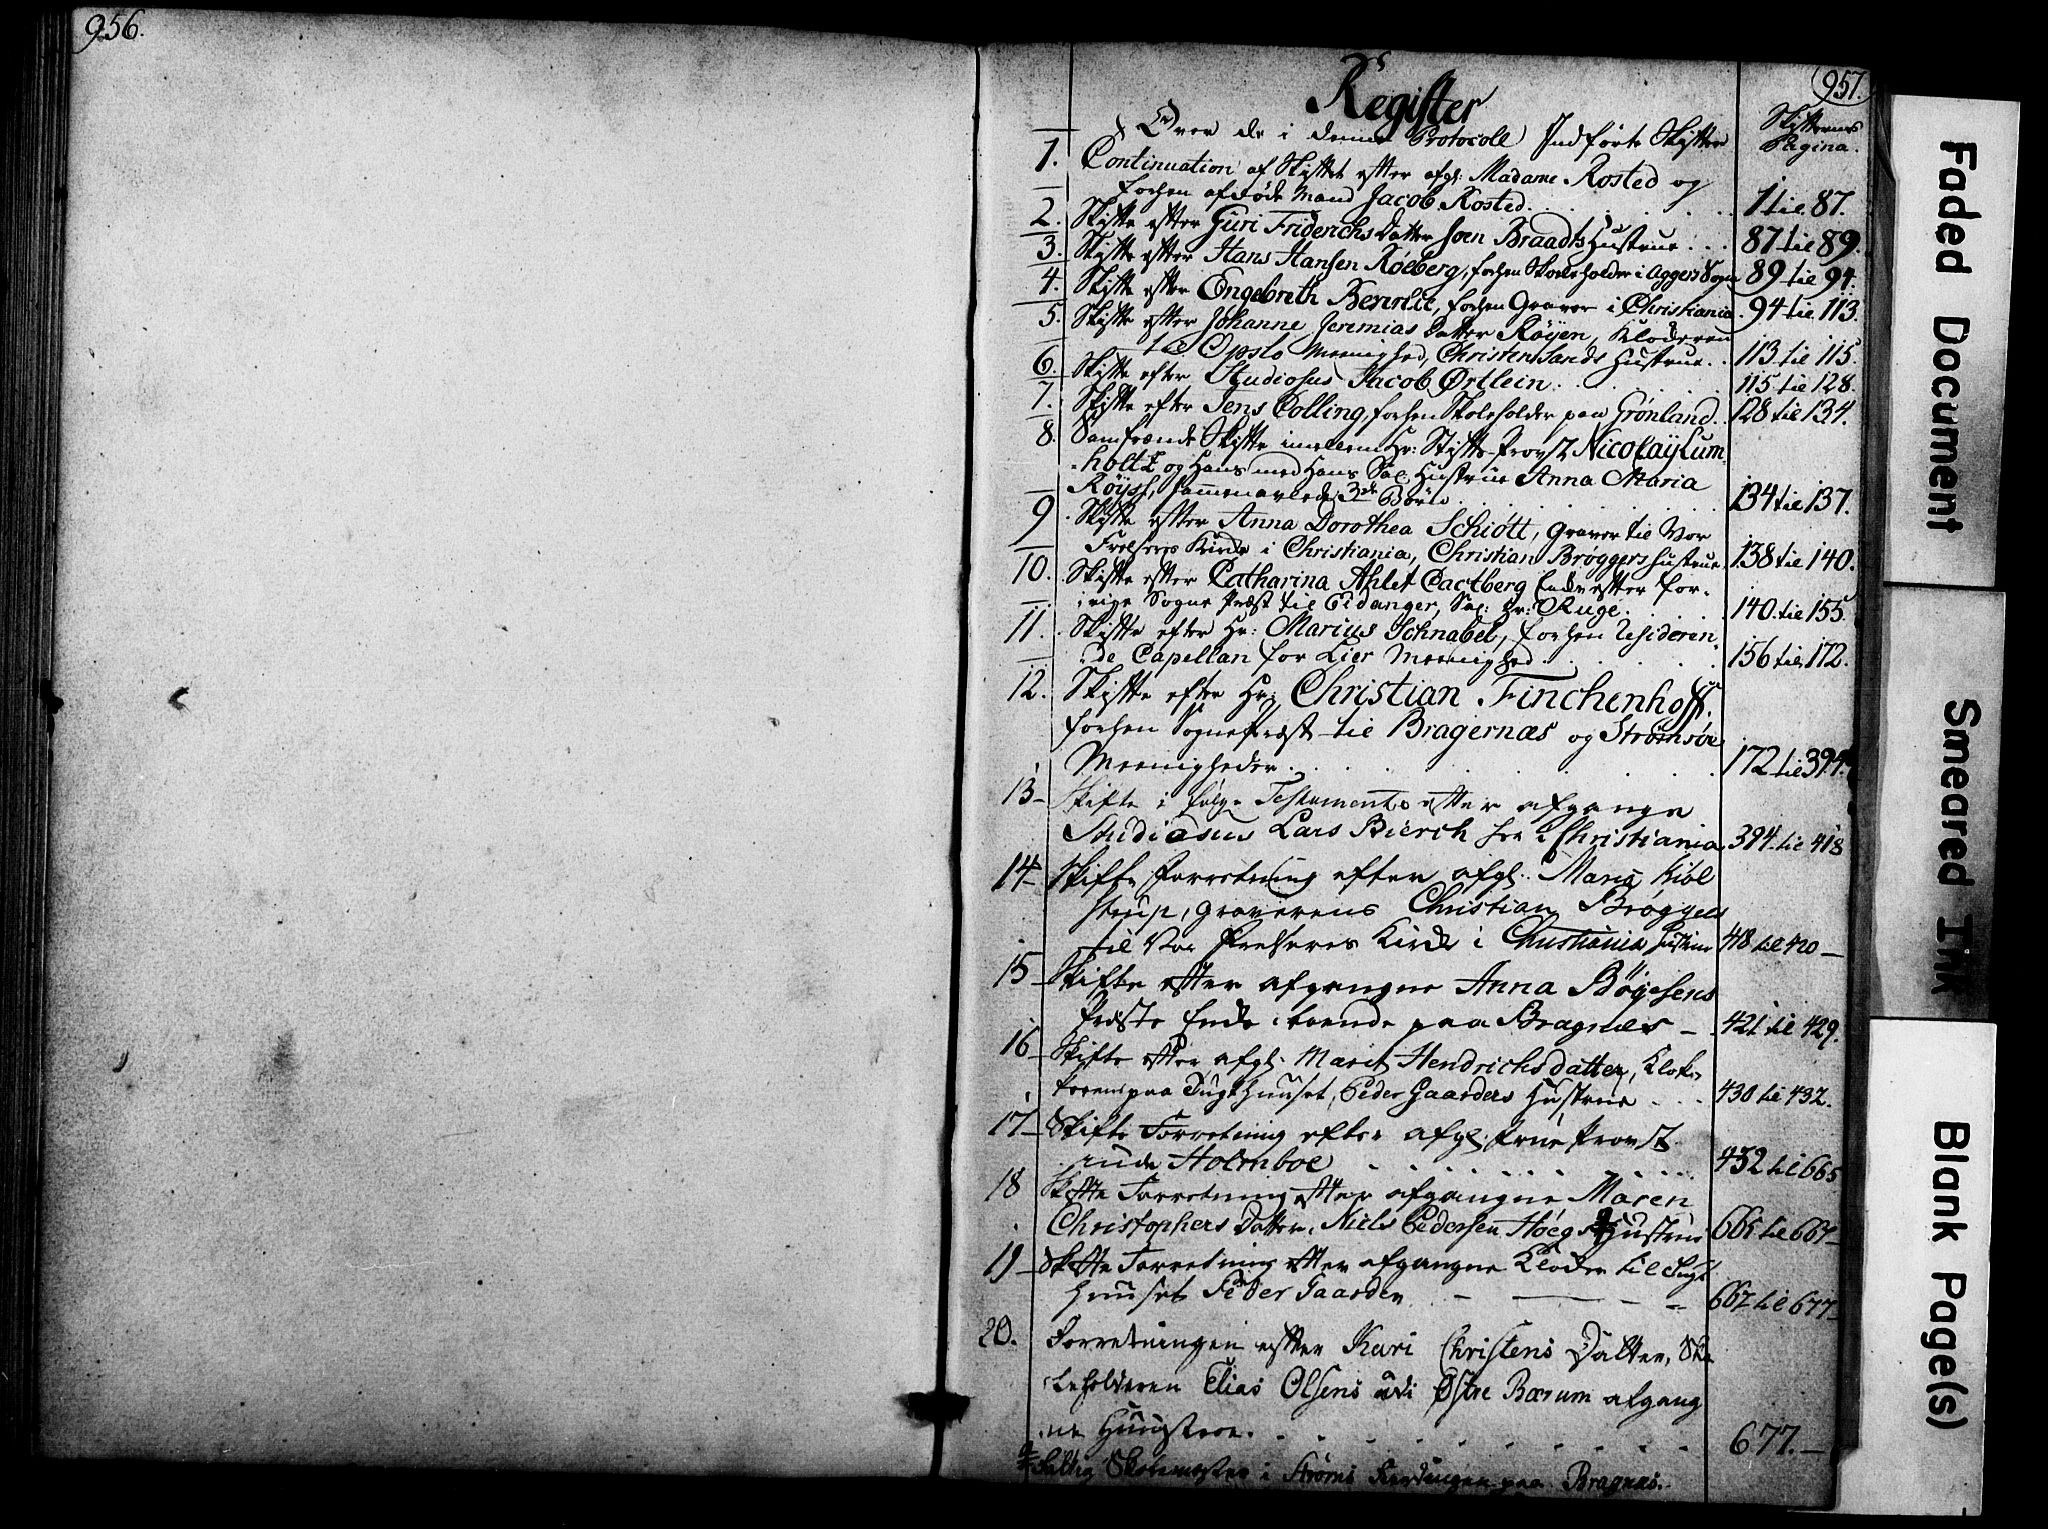 956.
957.
Register
Over de i denne Protocoll Indførte Skifter
Skifternes
Pagina.
1. Continuation af Skiftet efter afgl: Madame Rosted og
forhen afdøde Mand Jacob Rosted. 1 til 87.
2. Skifte efter Guri Friderichs Datter Joen Braadts Hustrue 87 til 89.
3. Skifte efter Hans Hansen Røeberg, forhen Skoleholder i Aggers Sogn 89 til 94.
4. Skifte efter Engebreth forhen Graver i Christiania 94 til 113.
5. Skifte efter Johanne Jeremias Datter Røyen, Klockeren
til Opslo Meenighed, Christen Sands Hustrue. 113 til 115.
6. Skifte efter Studiosus Jacob Ørtlein. 115 til 128.
7. Skifte efter Jens Colling, forhen Skoleholder paa Grønland. 128 til 134.
8. Samfrænde Skifte imellem Hr: Stifts-Provst Nicolay Lum-
holtz og Hans med Hans Sal. Hustrue Anna Maria
Røyst, sammenavlede 3de Børn 134 til 137.
9. Skifte efter Anna Dorothea Schiött, Graver til Vor
Frelseres Kirke i Christiania, Christian Brøggers Hustrue 138 til 140.
10. Skifte efter Catharina Ahlet Bactberg Enke efter for-
rige Sogne Præst til Eidanger, Sal: Hr: Ruge. 140 til 155.
11. Skifte efter Hr: Marius Schnabel, forhen Resideren-
de Capellan for Lier Meenighed. 156 til 172.
12. Skifte efter Hr: Christian Finchenhoff.
forhen Sognepræst til Bragernæs og Strømsøe
Meenigheder. 172 til 394.
13 Skifte i følge Testamente efter afgangne
Studiosus Lars Bierch her i Christiania. 394 til 418
14 Skifte Forretning efter afgl. Maria Kiøl
strup, Graverens Christian Brøggers
til Vor Frelseres Kirke i Christiania Hustrue 418 til 420
15 Skifte efter afgangne Anna Bøgesens
Præste Enke boende paa Bragnæs 421 til 429.
16 Skifte efter afgl. Marit Hendrichsdatter, Klok-
kerens paa Tugthuuset, Peder Gaarders Hustrue 430 til 432.
17 Skifte Forretning efter afgl. Frue Provst
inde Holmboe 432 til 665
18 Skifte Forretning efter afgangne Maren
Christophers Datter, Niels Pedersen Høegs Hustrue 665 til 667
19 Skifte Forretning efter afgangne Klocker til Tugt
Huuset Peder Gaarder 667 til 677
20. Forretningen efter Kari Christens Datter, Sko
leholderen Elias Olsens udi Østre Bærum afgang
ne Huustroe. 677.
Skolemester i Strøms paa Bragnæs.
Faded Document
Smeared Ink
Blank Page(s)